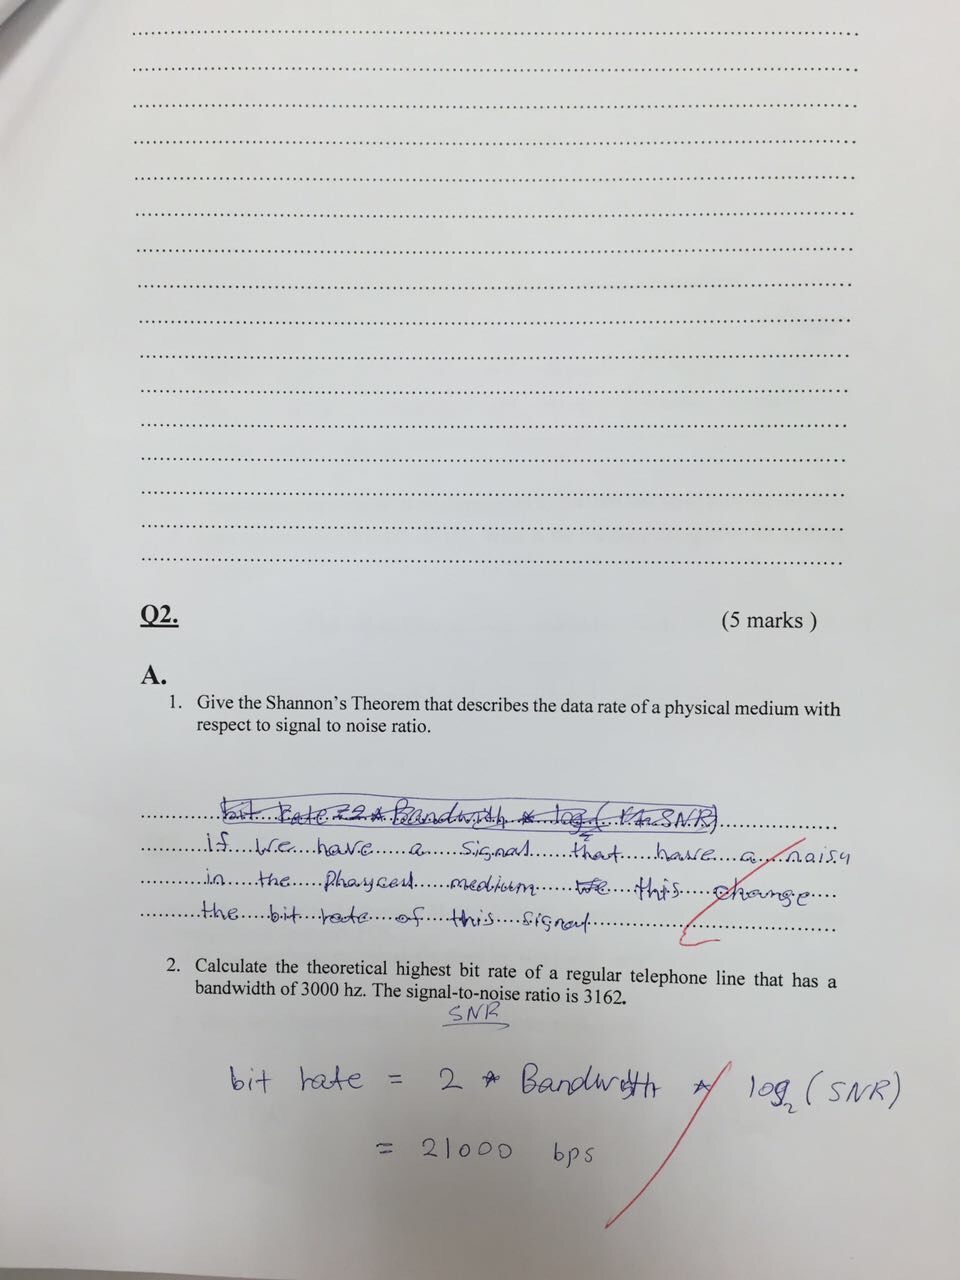 Q2.
(5 marks )
A.
1. Give the Shannon's Theorem that describes the data rate of a physical medium with
respect to signal to noise ratio.
bit rate = 2 * Bandwidth * log2 ( 1 + SNR)
if we have a signal that have a naisy
in the Phayced medium this change
the bit rate of this signal
2. Calculate the theoretical highest bit rate of a regular telephone line that has a
bandwidth of 3000 hz. The signal-to-noise ratio is 3162.
SNR
bit rate = 2 * Bandwidth * log2 ( SNR)
= 21000 bps